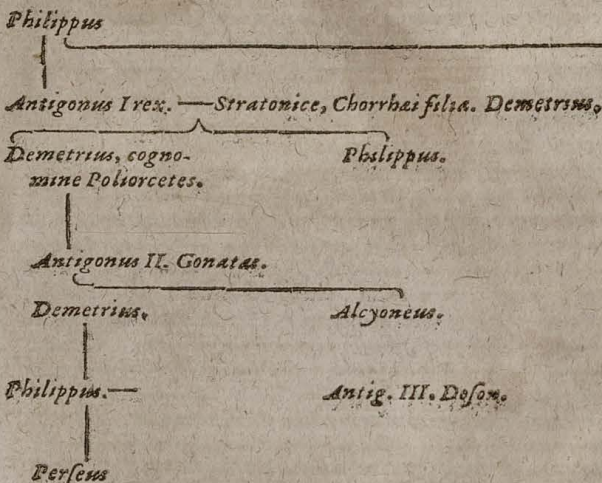 Philippus
Antigonus I rex. — Stratonice, Chorrhæi filia. Demetrius,
Demetrius, cogno-
mine Poliorcetes.
Philippus.
Antigonus II. Gonatas.
Demetrius.
Alcyoneus.
Philippus. —
Antig. III. Doſon.
Perſeus